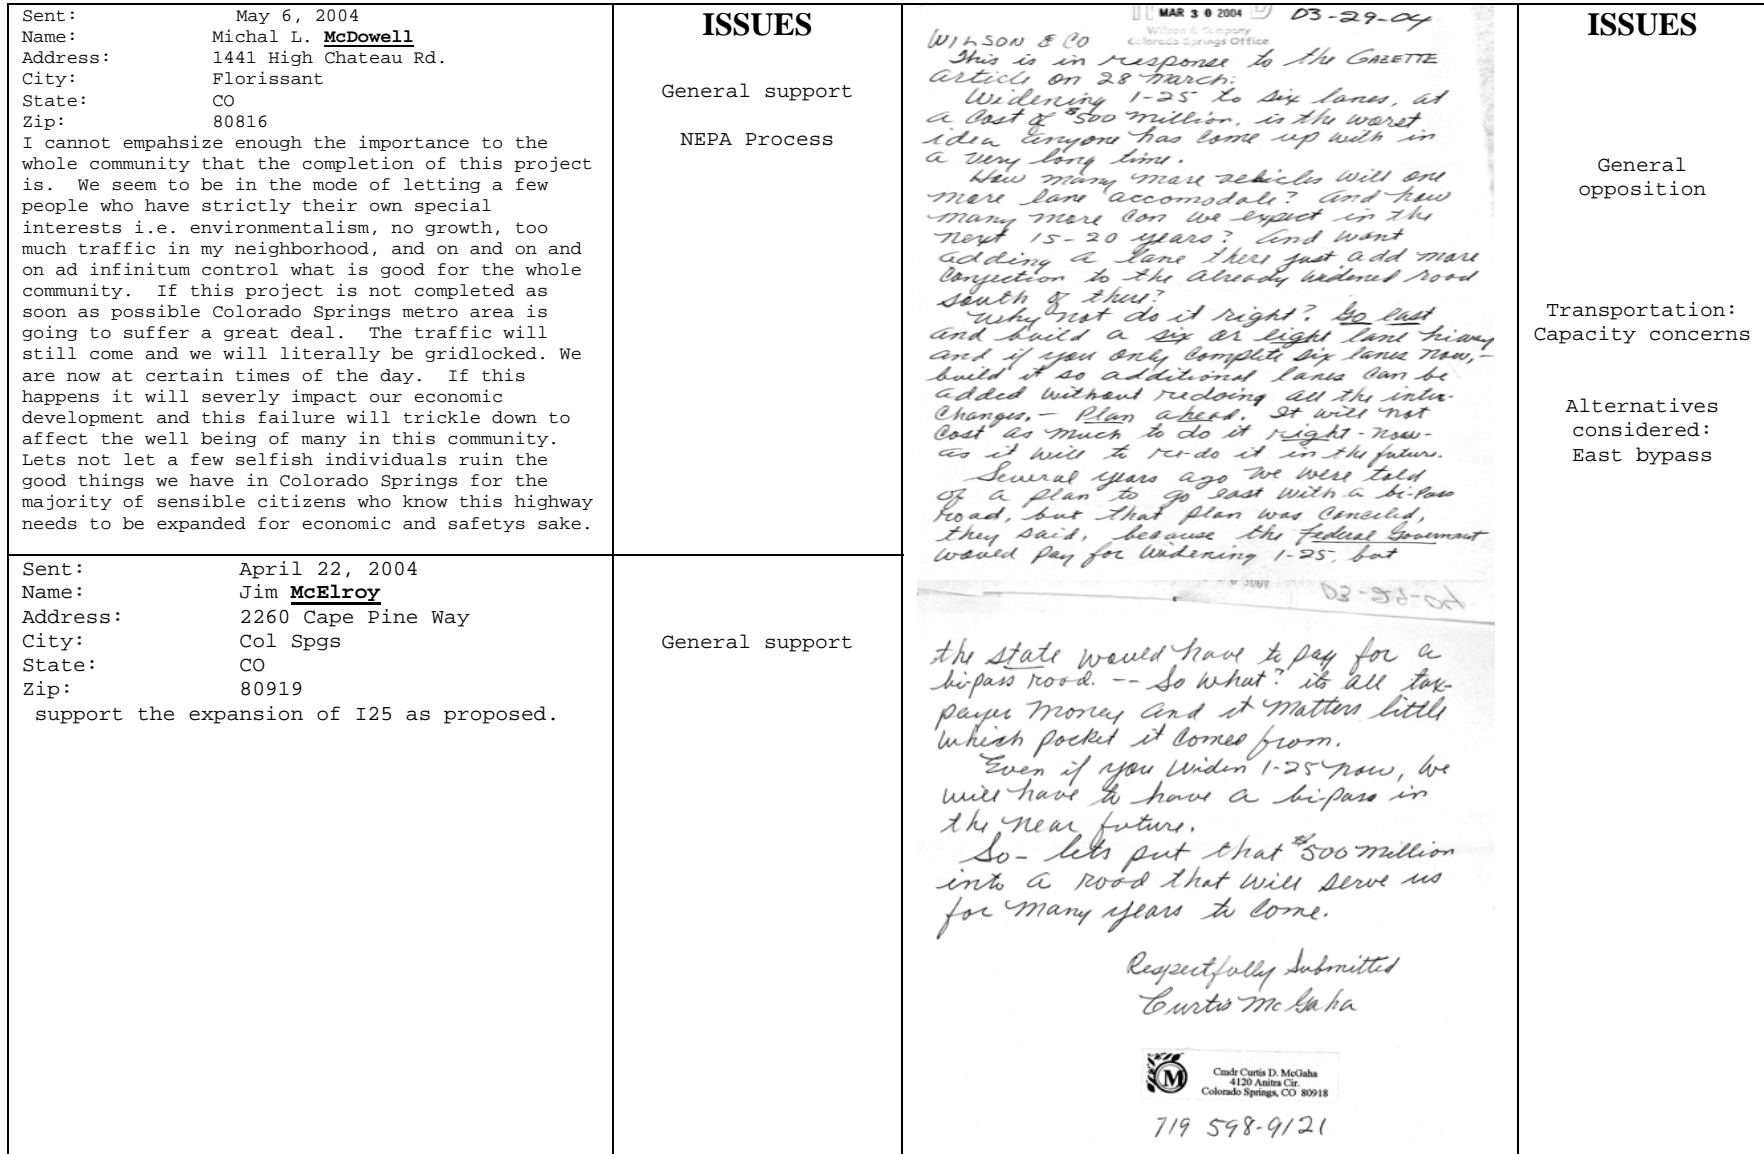 Sent: May 6, 2004
Name: Michal L. McDowell
Address: 1441 High Chateau Rd.
City: Florissant
State: CO
Zip: 80816
I cannot empahsize enough the importance to the
whole community that the completion of this project
is. We seem to be in the mode of letting a few
people who have strictly their own special
interests i.e. environmentalism, no growth, too
much traffic in my neighborhood, and on and on and
on ad infinitum control what is good for the whole
community. If this project is not completed as
soon as possible Colorado Springs metro area is
going to suffer a great deal. The traffic will
still come and we will literally be gridlocked. We
are now at certain times of the day. If this
happens it will severly impact our economic
development and this failure will trickle down to
affect the well being of many in this community.
Lets not let a few selfish individuals ruin the
good things we have in Colorado Springs for the
majority of sensible citizens who know this highway
needs to be expanded for economic and safetys sake.
ISSUES
General support
NEPA Process
Sent: April 22, 2004
Name: Jim McElroy
Address: 2260 Cape Pine Way
City: Col Spgs
State: CO
Zip: 80919
support the expansion of I25 as proposed.
General support
MAR 30 2004 03-29-04
Wilson & Company
Colorado Springs Office
WILSON & CO
This is in response to the GAZETTE
article on 28 March.
Widening 1-25 to six lanes, at
a cost of $500 million, is the worst
idea anyone has come up with in
a very long time.
How many more vehicles will one
more lane accomodate? And how
many more can we expect in the
next 15-20 years? And wont
adding a lane there just add more
conjection to the already widened road
south of there?
Why not do it right? Go east
and build a six or eight lane hiway
and if you only complete six lanes now,-
build it so additional lanes can be
added without redoing all the inter-
changes. - Plan ahead. It will not
cost as much to do it right - now -
as it will to re-do it in the future.
Several years ago we were told
of a plan to go east with a bi-pass
road, but that plan was canceled,
they said, because the Federal Government
would pay for widening 1-25, but
the state would have to pay for a
bi-pass road. -- So what? its all tax-
payer money and it matters little
which pocket it comes from.
Even if you widen 1-25 now, we
will have to have a bi-pass in
the near future.
So - lets put that $500 million
into a road that will serve us
for many years to come.
Respectfully Submitted
Curtis McGaha
M
Cmdr Curtis D. McGaha
4120 Anitra Cir.
Colorado Springs, CO 80918
719 598-9121
ISSUES
General
opposition
Transportation:
Capacity concerns
Alternatives
considered:
East bypass